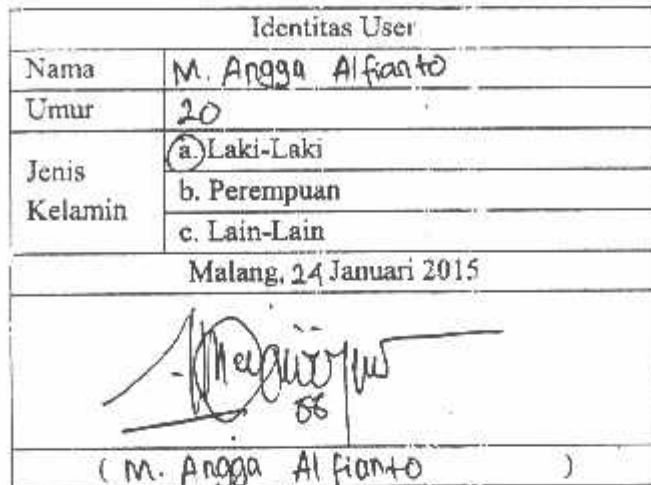 Identitas User
Nama M. Angga Alfianto
Umur 20
Jenis Kelamin
a. Laki-Laki
b. Perempuan
c. Lain-Lain
Malang, 24 Januari 2015
( M. Angga Alfianto )